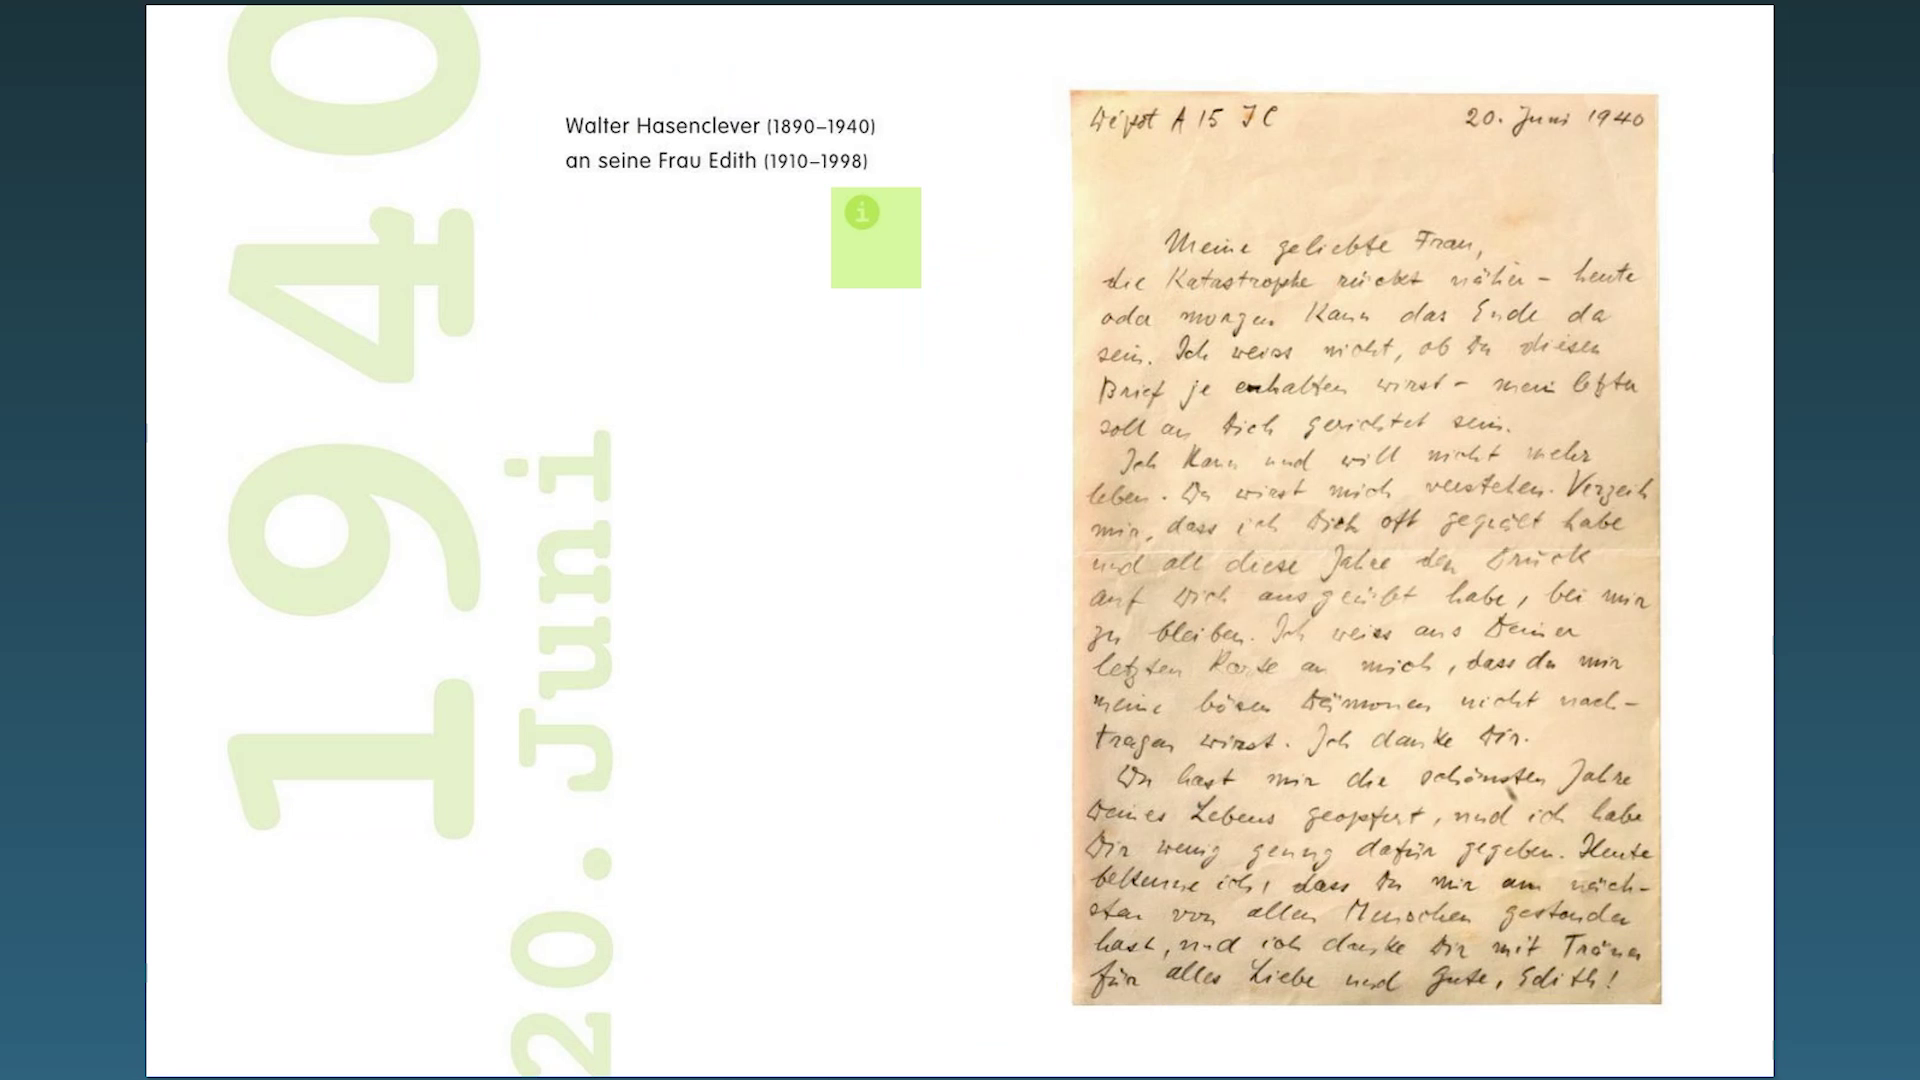 1940
20. Juni
Walter Hasenclever (1890–1940)
an seine Frau Edith (1910–1998)
i
Dépôt A 15 I C 20. Juni 1940
Meine geliebte Frau,
die Katastrophe rückt näher – heute
oder morgen kann das Ende da
sein. Ich weiss nicht, ob Du diesen
Brief je erhalten wirst – mein letzter
soll an Dich gerichtet sein.
Ich kann und will nicht mehr
leben. Du wirst mich verstehen. Verzeih
mir, dass ich Dich oft gequält habe
und all diese Jahre den Druck
auf Dich ausgeübt habe, bei mir
zu bleiben. Ich weiss aus Deiner
letzten Karte an mich, dass du mir
meine bösen Dämonen nicht nach-
tragen wirst. Ich danke Dir.
Du hast mir die schönsten Jahre
Deines Lebens geopfert, und ich habe
Dir wenig genug dafür gegeben. Heute
bekenne ich, dass Du mir am näch-
sten von allen Menschen gestanden
hast, und ich danke Dir mit Tränen
für alles Liebe und Gute, Edith!